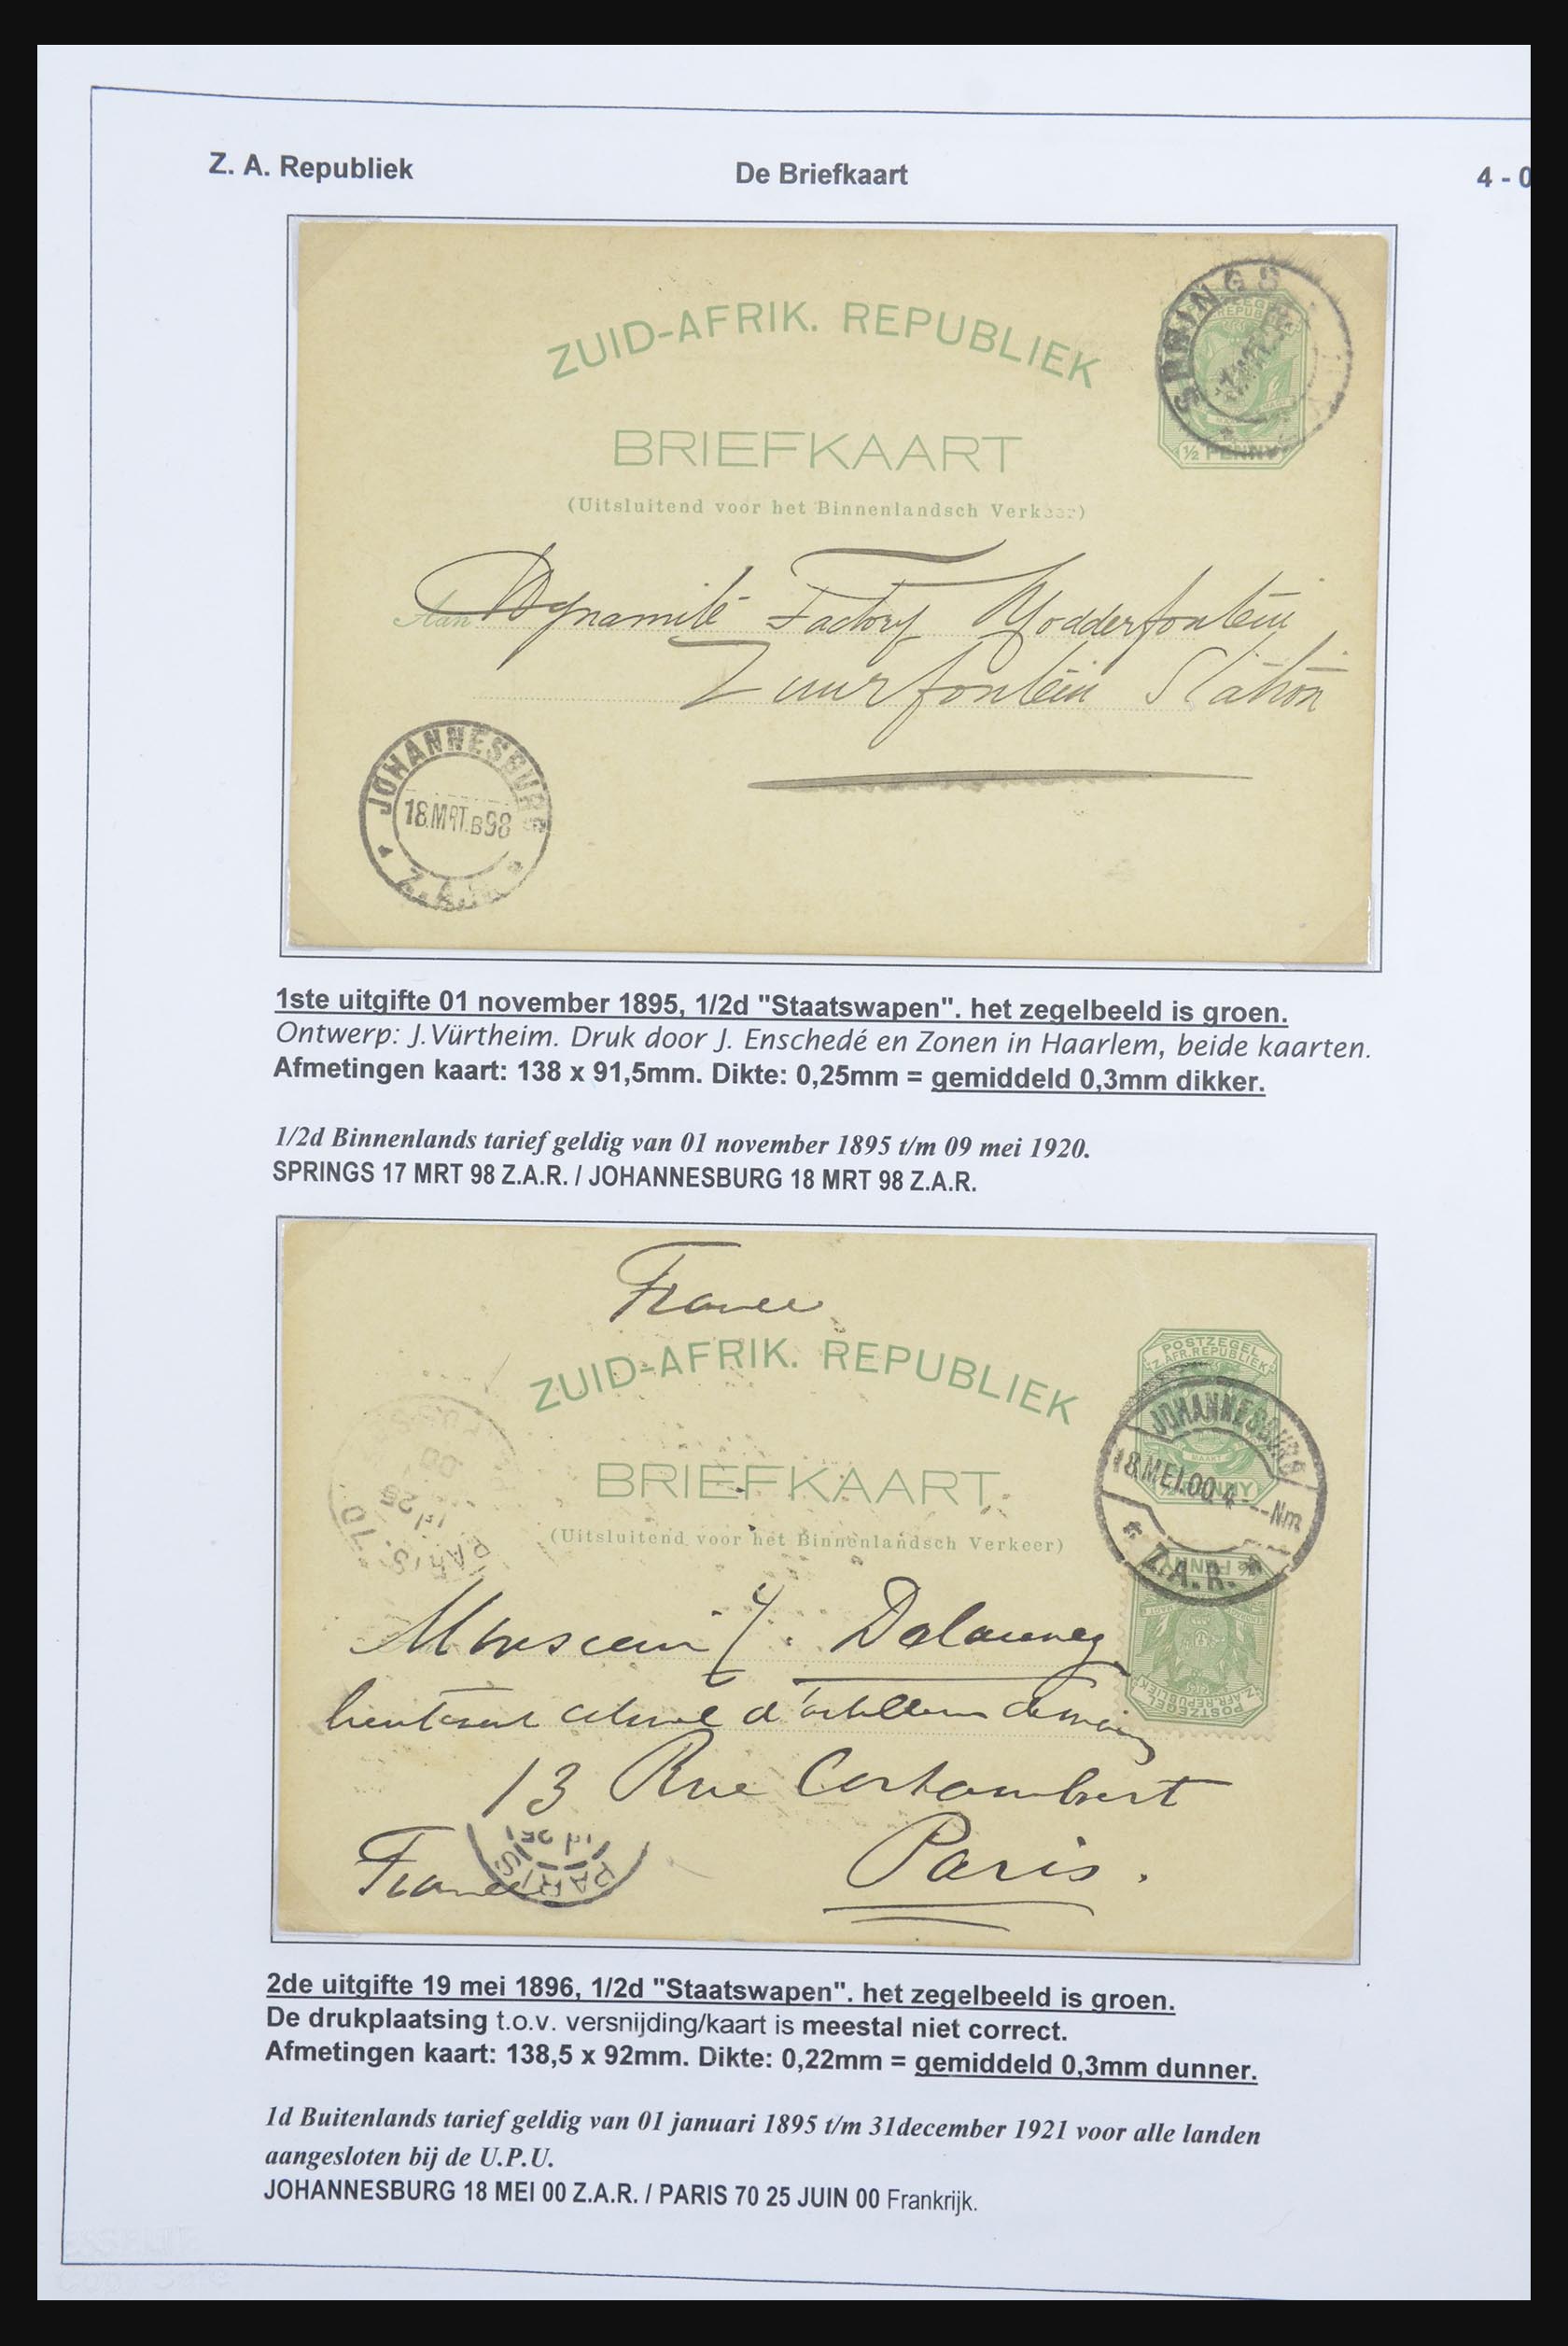 Z. A. Republiek
De Briefkaart
4 - 0
SPRINGS
ZUID-AFRIK. REPUBLIEK
BRIEFKAART
1/2 PENNY
(Uitsluitend voor het Binnenlandsch Verkeer)
Aan Dynamite Factory Modderfontein
Zuurfontein Station
JOHANNESBURG
18.MRT.B98
Z.A.R.
1ste uitgifte 01 november 1895, 1/2d "Staatswapen". het zegelbeeld is groen.
Ontwerp: J.Vürtheim. Druk door J. Enschedé en Zonen in Haarlem, beide kaarten.
Afmetingen kaart: 138 x 91,5mm. Dikte: 0,25mm = gemiddeld 0,3mm dikker.
1/2d Binnenlands tarief geldig van 01 november 1895 t/m 09 mei 1920.
SPRINGS 17 MRT 98 Z.A.R. / JOHANNESBURG 18 MRT 98 Z.A.R.
France
ZUID-AFRIK. REPUBLIEK
POSTZEGEL
Z.AFR.REPUBLIEK
JOHANNESBURG
18.MEI.00.4--Nm
Z.A.R.
BRIEFKAART
(Uitsluitend voor het Binnenlandsch Verkeer)
PARIS
Delauney
POSTZEGEL
Z.AFR.REPUBLIEK
13 Rue Cortambert
Paris.
France
PARIS
2de uitgifte 19 mei 1896, 1/2d "Staatswapen". het zegelbeeld is groen.
De drukplaatsing t.o.v. versnijding/kaart is meestal niet correct.
Afmetingen kaart: 138,5 x 92mm. Dikte: 0,22mm = gemiddeld 0,3mm dunner.
1d Buitenlands tarief geldig van 01 januari 1895 t/m 31december 1921 voor alle landen
aangesloten bij de U.P.U.
JOHANNESBURG 18 MEI 00 Z.A.R. / PARIS 70 25 JUIN 00 Frankrijk.